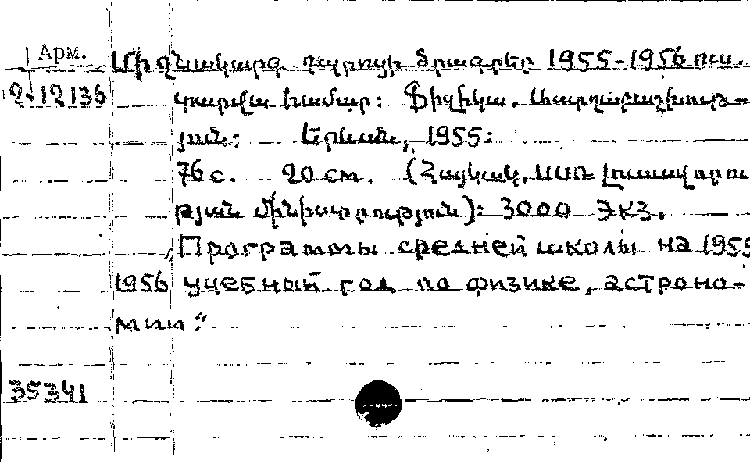 Арм.
Միջնակարգ դպրոցի ծրագրեր 1955-1956 ուս.
2-12136
տարվա համար: Ֆիզիկա, Աստղաբաշխութ-
յուն: Երևան, 1955:
76 с. 20 см. (Հայկական ՍՍՌ Լուսավորու
թյան մինիստրություն): 3000 экз.
„Программы средней школы на 1955
1956 учебный год по физике, астроно-
мии."
35341